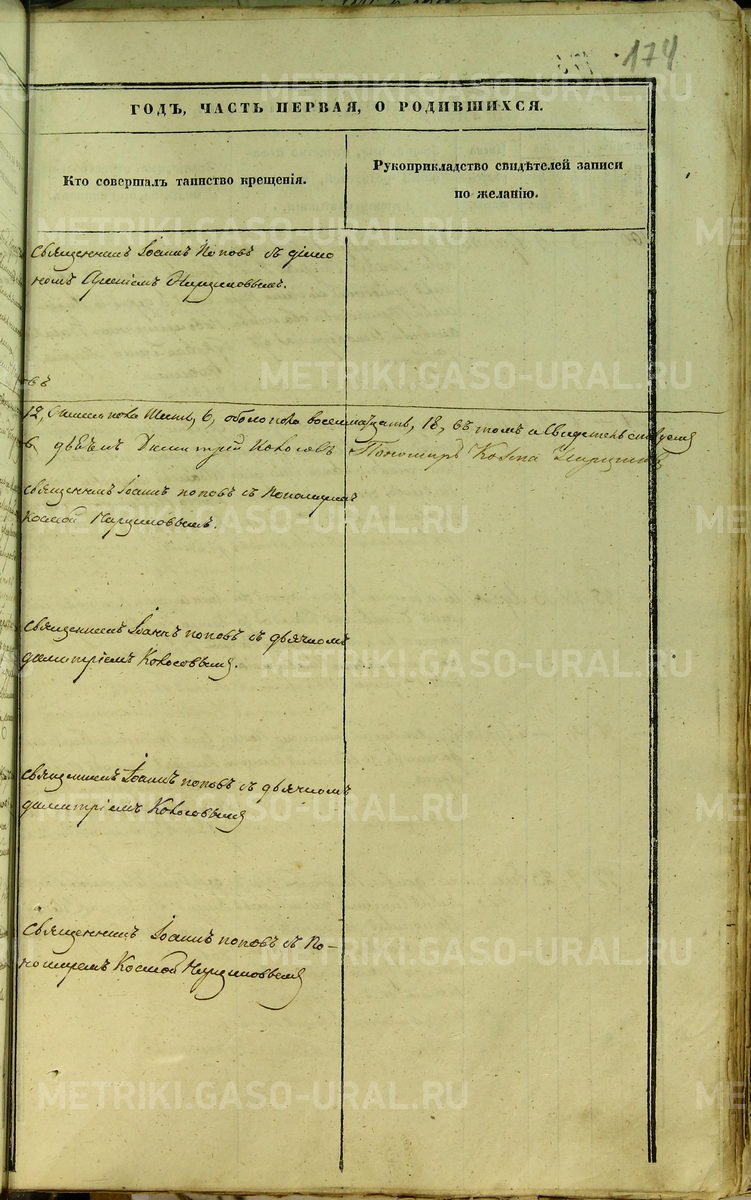 174
ГОДЪ, ЧАСТЬ ПЕРВАЯ, О РОДИВШИХСЯ.
Кто совершалъ таинство крещенія.
Рукоприкладство свидѣтелей записи
по желанію.
Священникъ Іоаннъ Поповъ съ діако
номъ
12, женска пола шесть, 6, обоего пола восемнадцать, 18, въ томъ и свидѣтельствуемъ
Димитрій Колосовъ Пономарь Косма
Священникъ Іоаннъ Поповъ съ Пономаремъ
Космой
Священникъ Іоаннъ Поповъ съ дьячкомъ
Димитріемъ Колосовымъ.
Священникъ Іоаннъ Поповъ съ дьячкомъ
Димитріемъ Колосовымъ
Священникъ Іоаннъ Поповъ съ По-
номаремъ Космой
METRIKI.GASO-URAL.RU